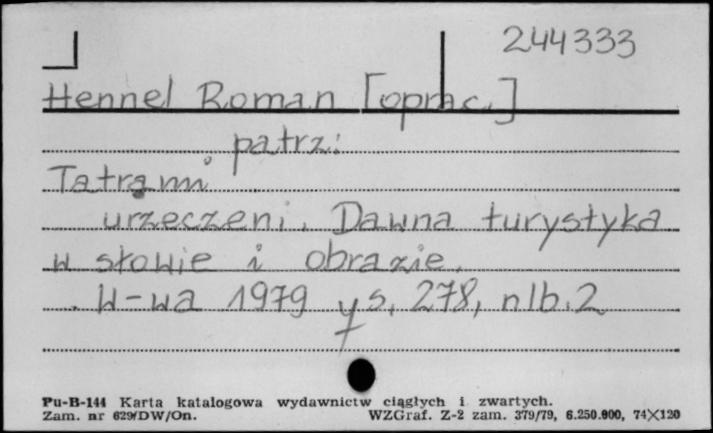 244333
Hennel Roman [oprac.]
patrz:
Tatrami
urzeczeni. Dawna turystyka
w słowie i obrazie.
W-wa 1979 s. 278, nlb. 2
Pu-B-144 Karta katalogowa wydawnictw ciągłych i zwartych.
Zam. nr 629/DW/On. WZGraf. Z-2 zam. 379/79, 6.250.000, 74×120